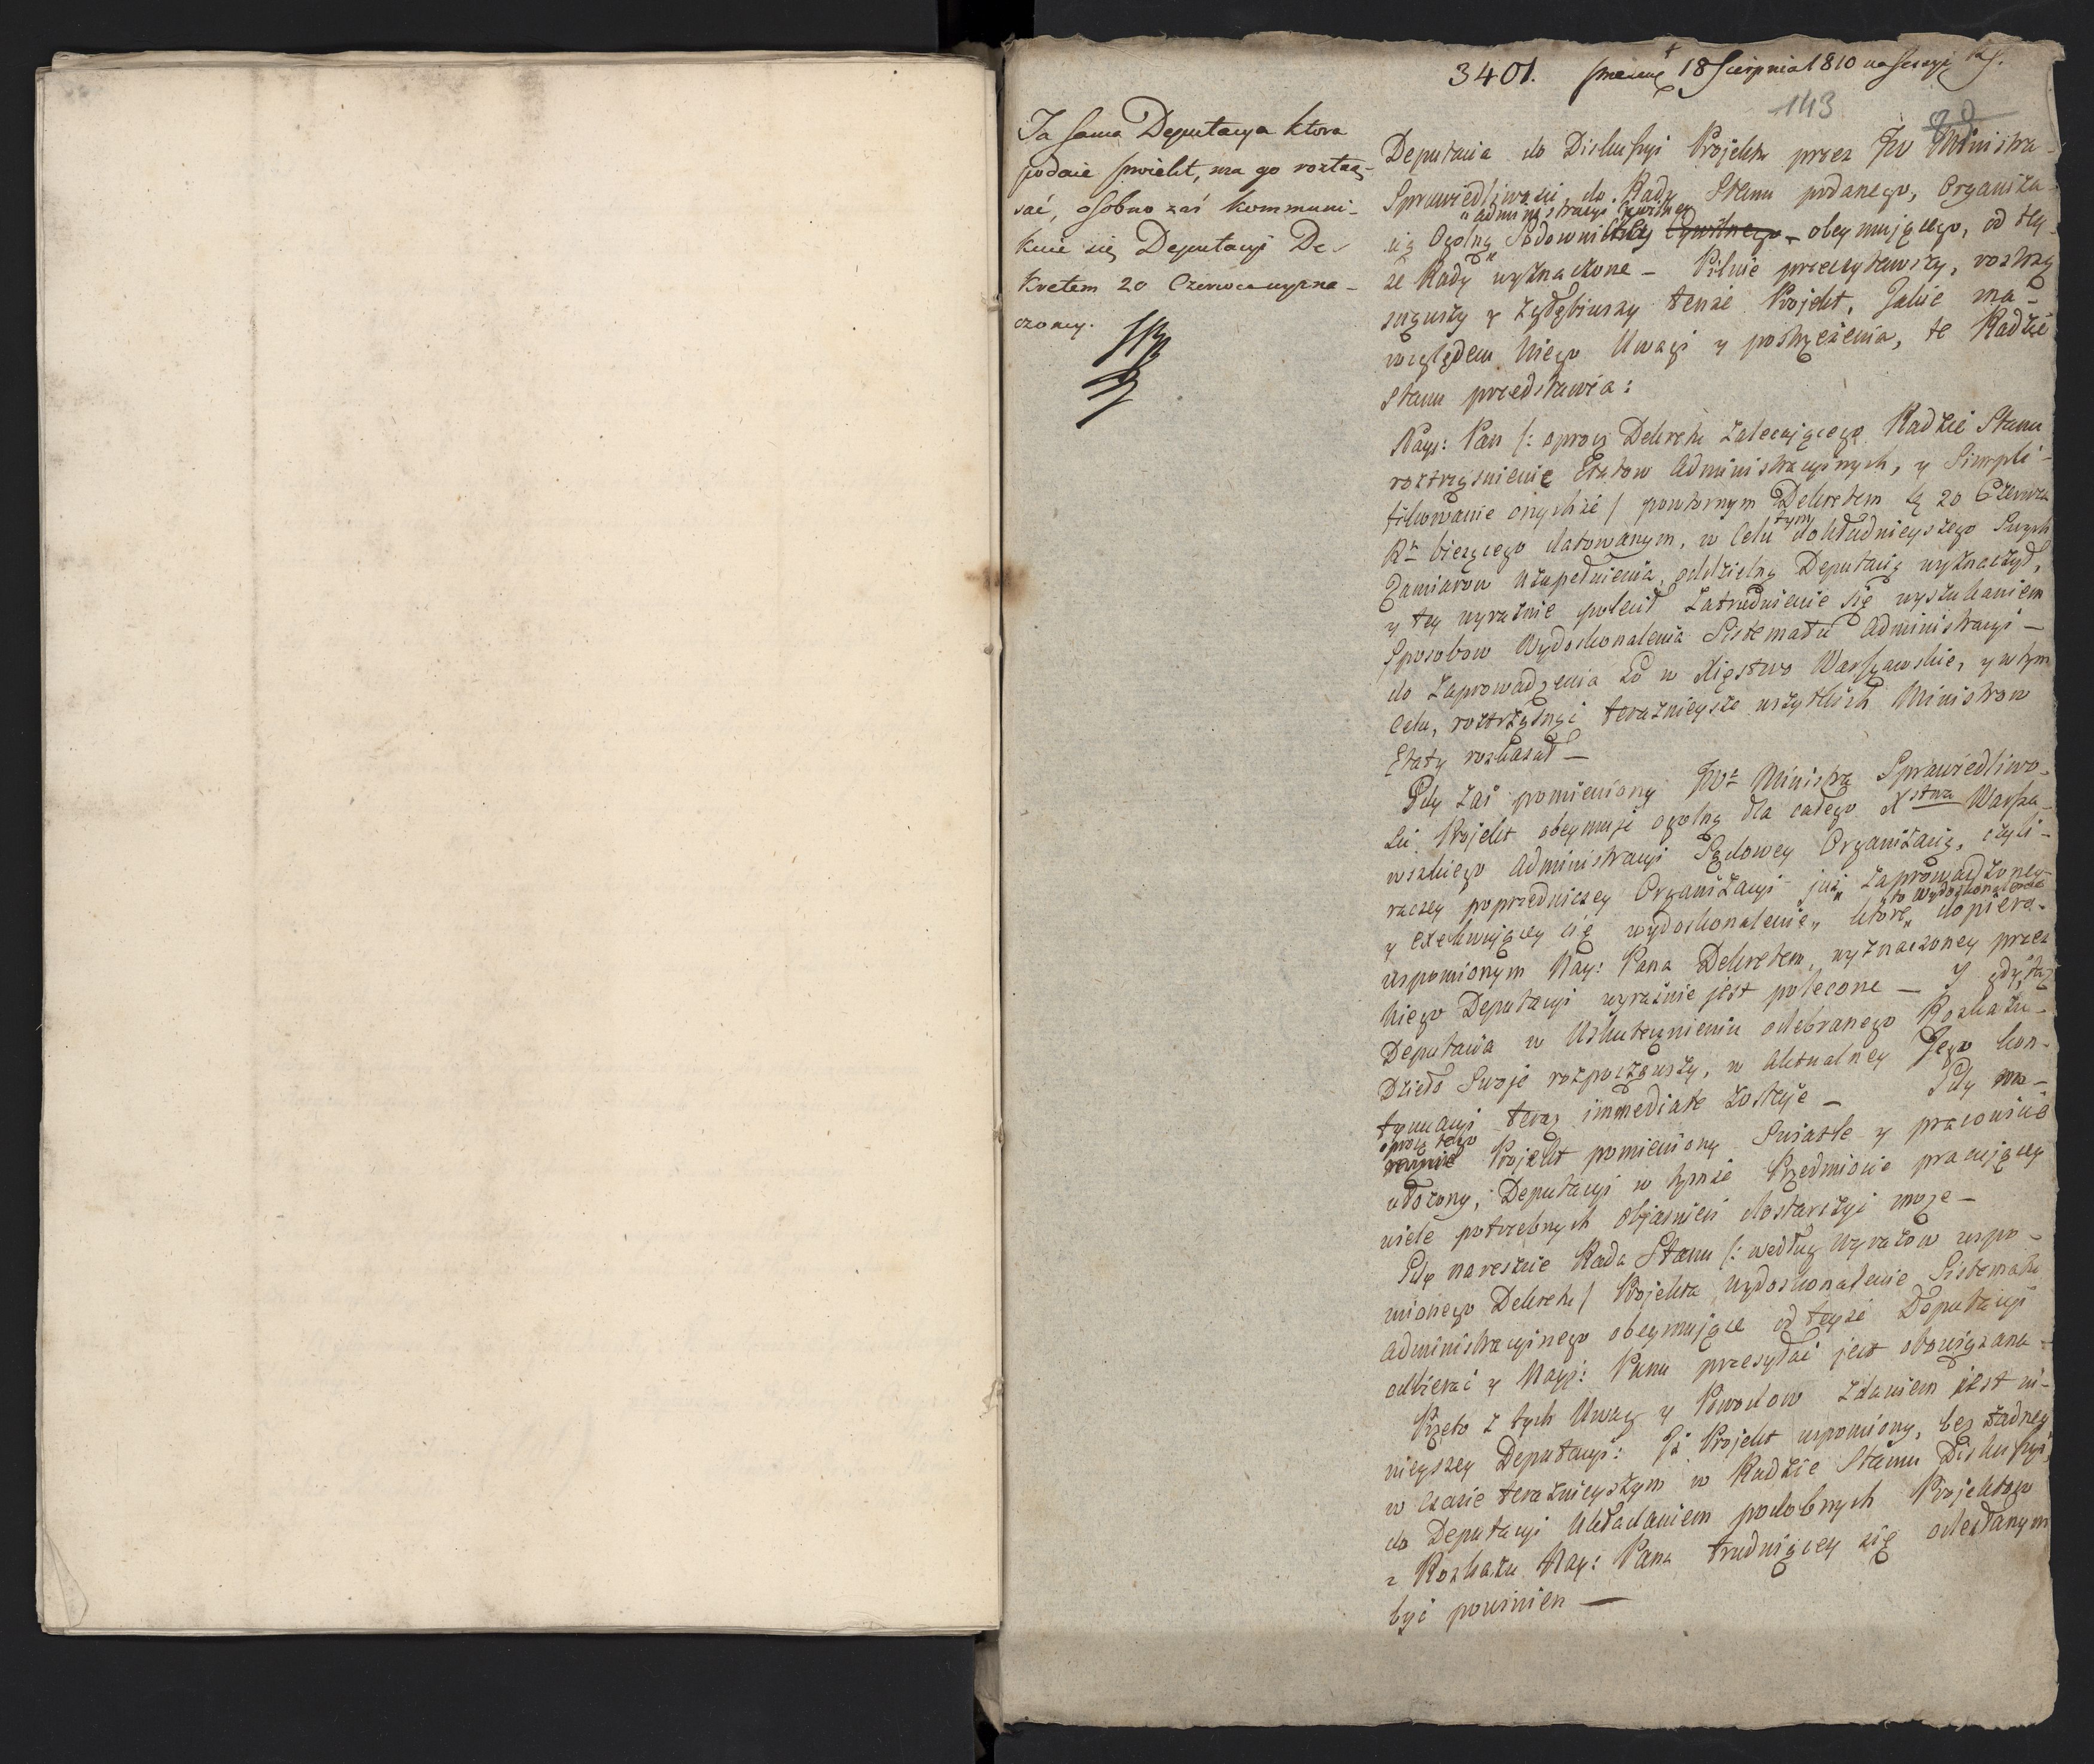 3401. 18 Sierpnia 1810 na Sessyi RS.
143
Ta sama Deputacya ktora
podaie proiekt, ma go roztrzą-
sać, osobno zaś kommuni-
kuie się Deputacyi De-
kretem 20 Czerwca wyzna-
czoney.
Deputacia do Diskussyi Projektu przez JW Ministra
Sprawiedliwości do Rady Stanu podanego, Organiza-
cią Ogolną Sądowniczey obeymującego, od tey-
że Rady wyznaczona – Pilnie przeczytawszy, rostrzą
snąwszy y zgłębiwszy tenże Projekt, Jakie ma-
względem Niego Uwagi y postrzeżenia, te Radzie
Stanu przedstawia:
Nayj: Pan /: oprocz Dekretu zalecającego Radzie Stanu
roztrząsnienie Etatow Administracyinych, y Simpli-
fikowanie onychże / powtornym Dekretem 20 Czerwca
Rku bieżącego datowanym, w Celu tym dokładnieyszego Swych
Zamiarow uzupełnienia, oddzielną Deputacią wyznaczył,
y tey wyraźnie polecił zatrudnienie się wyszukaniem
Sposobow Wydoskonalenia Sistematu Administracyi –
do zaprowadzenia go w Xięstwo Warszawskie, y w tym
Celu, roztrząsnąć teraznieysze wszystkich Ministrow
Etaty rozkazał –
Gdy zaś pomieniony JWo Ministra Sprawiedliwo-
ści Projekt obeymuje ogolną dla całego Xstwa Warsza-
wskiego Administracyi Sądowey Organizacią, czyli-
raczey poprzedniczey Organizacyi już zaprowadzoney
y exekwującey się wydoskonalenie, które to Wydoskonalenie dopiero-
wspomionym Nay: Pana Dekretem, wyznaczoney przez
Niego Deputacyi wyraźnie jest polecone – Y gdy, ta
Deputacia w Uskutecznieniu odebranego Rozkazu-
Dzieło Swoje rozpocząwszy, w aktualney Jego kon-
tynuacyi teraz immediate zostaje – Gdy
oprocz tego Projekt pomieniony Swiatle y pracowicie
ułożony, Deputacyi w tymże Przedmiocie pracującey
wiele potrzebnych objasnień dostarczyć może –
Gdy nareszcie Rada Stanu /: według Wyrazow wspo-
mionego Dekretu / Projekta wydoskonalenie Sistematu
Administracyinego obeymujące od teyże Deputacyi
odbierać y Nayj: Panu przesyłać jest obowiązana –
Przeto z tych Uwag y Powodow zdaniem jest ni-
nieyszey Deputacyi: Iż Projekt wspomiony, bez żadney
w Czasie teraznieyszym w Radzie Stanu Diskussyi,
do Deputacyi Układaniem podobnych Projektow
z Rozkazu Nay: Pana trudniącey się odesłanym
być powinien –